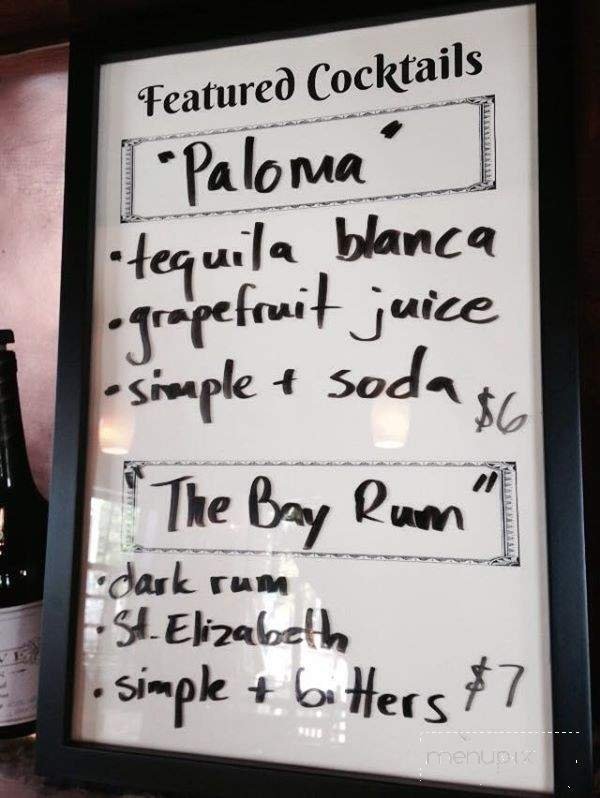 Featured Cocktails
"Paloma"
• tequila blanca
• grapefruit juice
• simple + soda $6
"The Bay Rum"
• dark rum
• St. Elizabeth
• simple + bitters $7
menupix